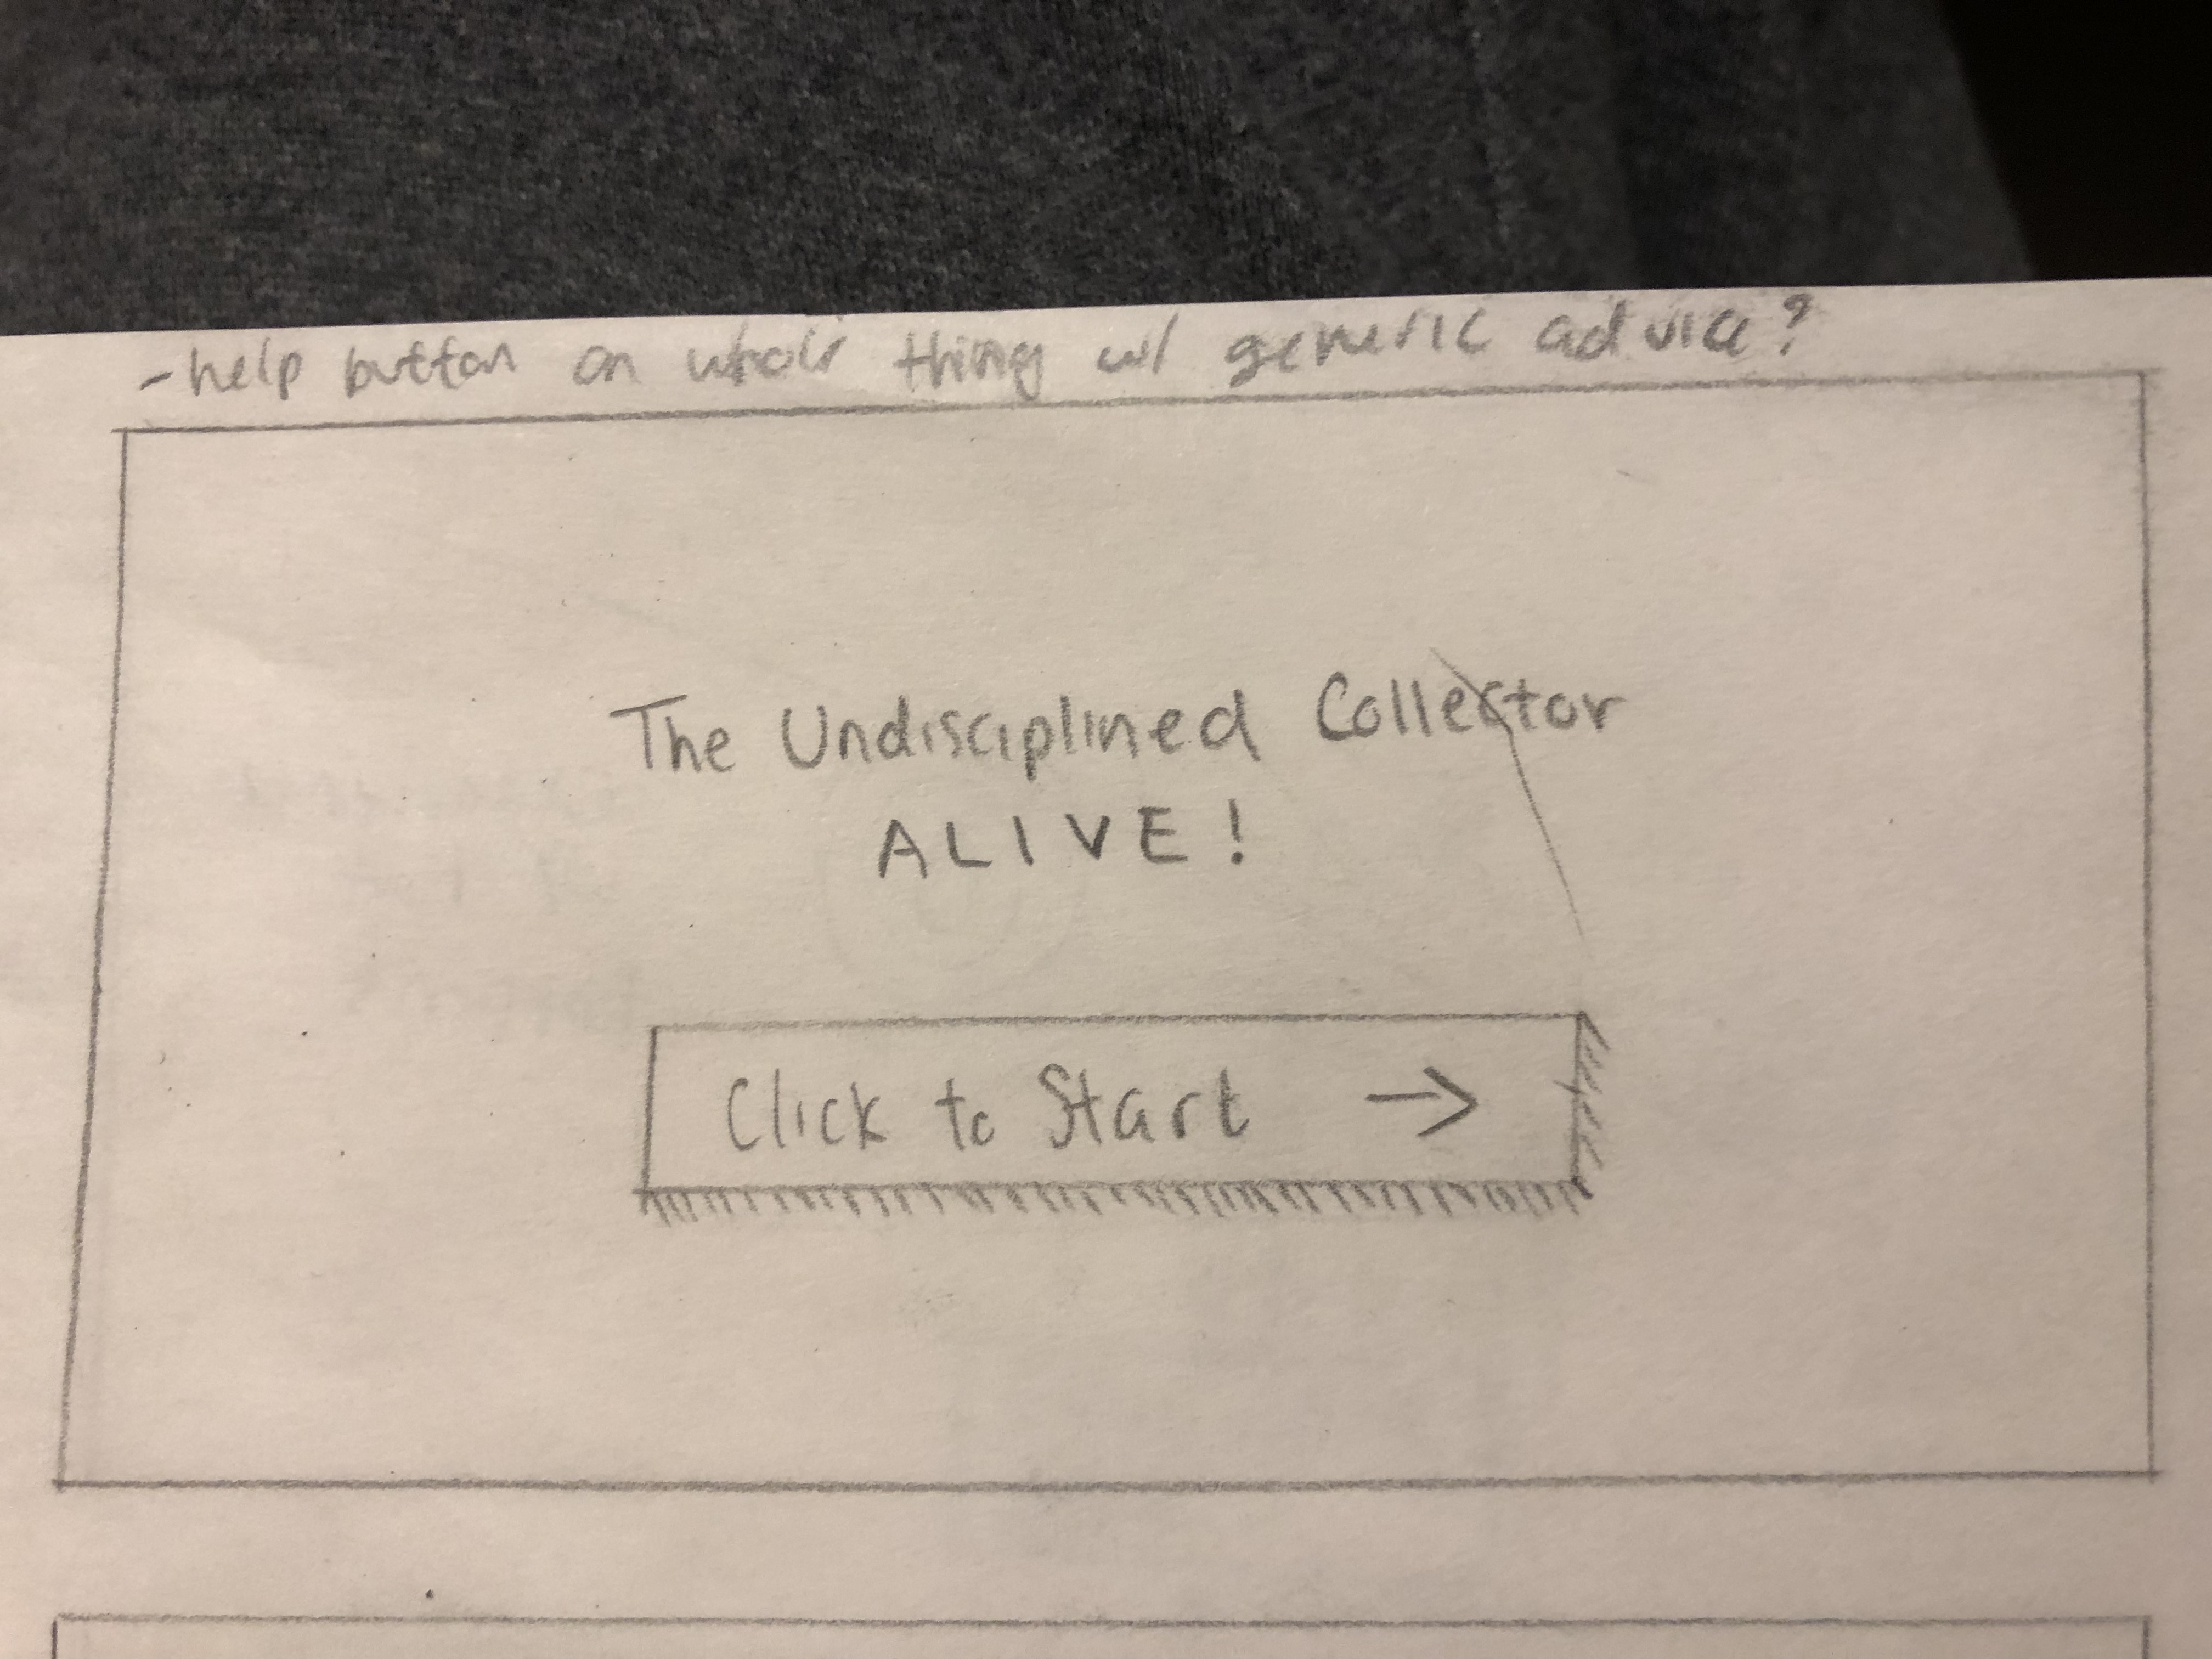 - help button on whole thing w/ generic advice?
The Undisciplined Collector
ALIVE!
Click to Start →